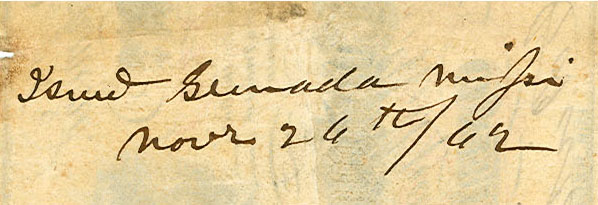 Issued Grenada Missi
Novr 26th/62